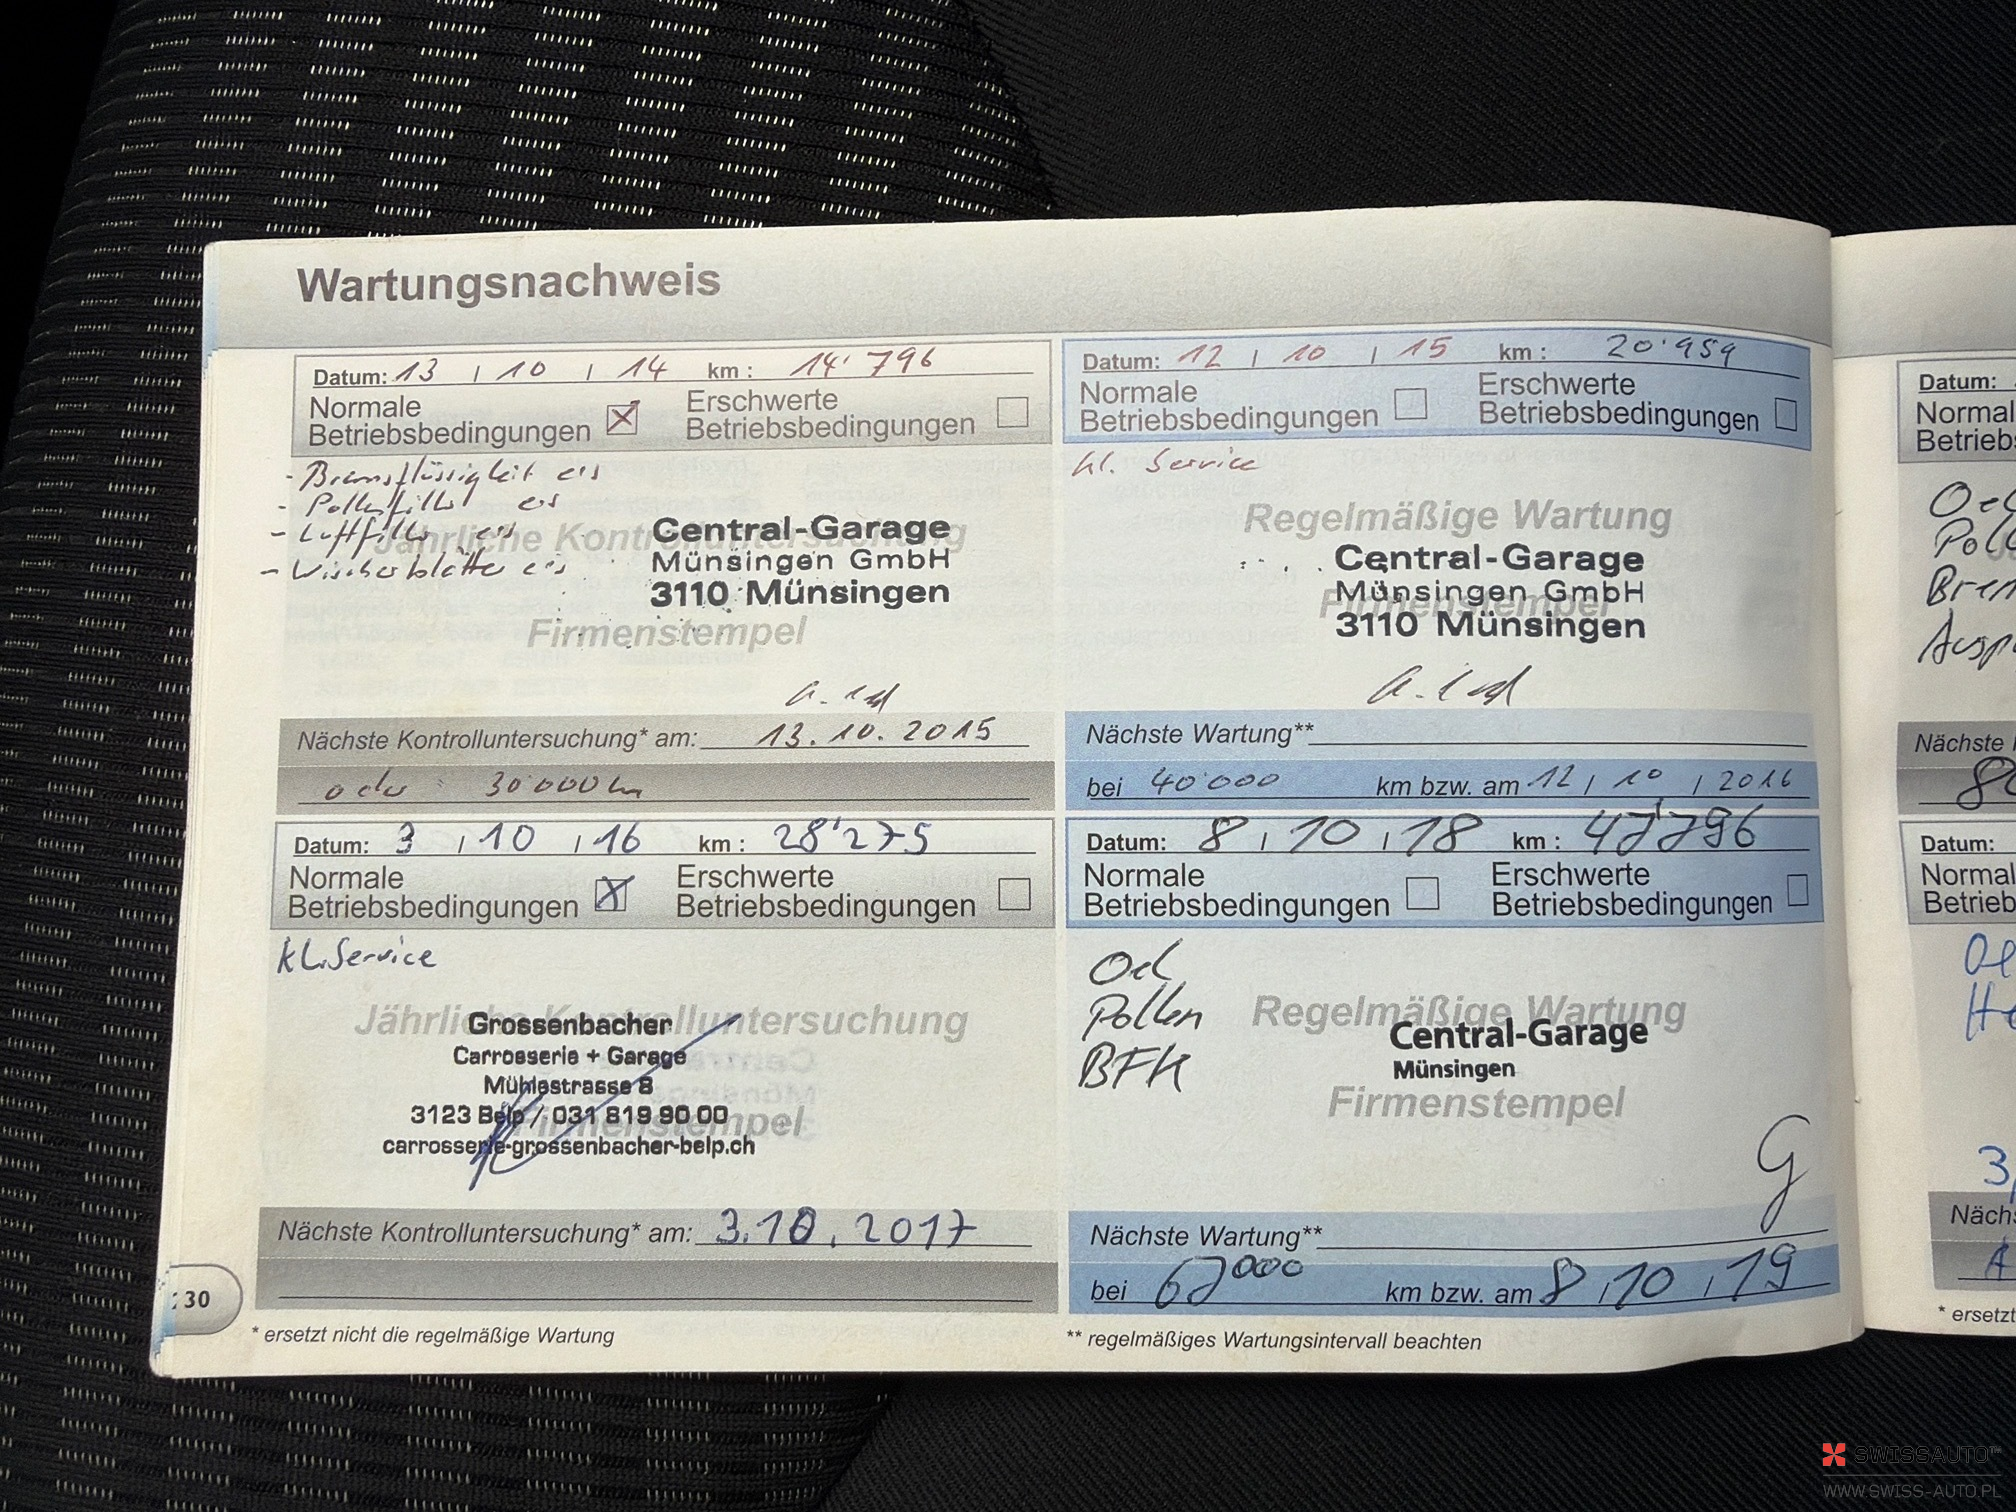 Wartungsnachweis
Datum: 13 / 10 / 14 km : 14'796
Normale
Betriebsbedingungen
Erschwerte
Betriebsbedingungen
- Bremsflüssigkeit ers
- Pollenfilter ers
- Luftfilter ers
- Wischerblätter ers
Jährliche Kontrolluntersuchung
Central-Garage
Münsingen GmbH
3110 Münsingen
Firmenstempel
Nächste Kontrolluntersuchung* am: 13.10.2015
oder 30'000 km
Datum: 12 / 10 / 15 km : 20'959
Normale
Betriebsbedingungen
Erschwerte
Betriebsbedingungen
kl. Service
Regelmäßige Wartung
Central-Garage
Münsingen GmbH
Firmenstempel
3110 Münsingen
Nächste Wartung**
bei 40'000 km bzw. am 12 / 10 / 2016
Datum: 3 / 10 / 16 km : 28'275
Normale
Betriebsbedingungen
Erschwerte
Betriebsbedingungen
kl. Service
Jährliche Kontrolluntersuchung
Grossenbacher
Carrosserie + Garage
Mühlestrasse 8
3123 Belp / 031 819 90 00
Firmenstempel
carrosserie-grossenbacher-belp.ch
Nächste Kontrolluntersuchung* am: 3.10.2017
Datum: 8 / 10 / 18 km : 47'796
Normale
Betriebsbedingungen
Erschwerte
Betriebsbedingungen
Oel
Pollen
BFK
Regelmäßige Wartung
Central-Garage
Münsingen
Firmenstempel
G
Nächste Wartung**
bei 67000 km bzw. am 8 / 10 / 19
30
* ersetzt nicht die regelmäßige Wartung
** regelmäßiges Wartungsintervall beachten
Datum:
Normal
Betriebs
Oel
Poll
Brem
Ausp
Nächste
Datum:
Normal
Betrieb
Oe
He
3
Nächs
* ersetzt
SWISSAUTO™
WWW.SWISS-AUTO.PL